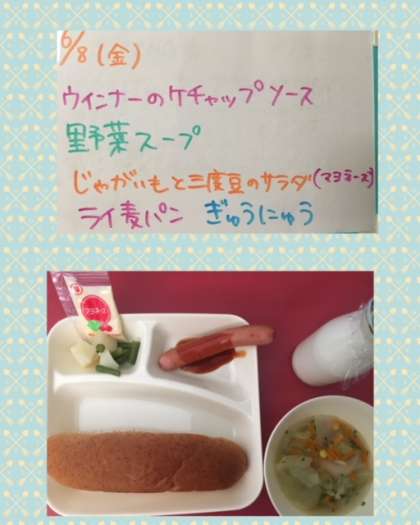 6/8(金)
ウインナーのケチャップソース
野菜スープ
じゃがいもと三度豆のサラダ(マヨネーズ)
ライ麦パン ぎゅうにゅう
マヨネーズ